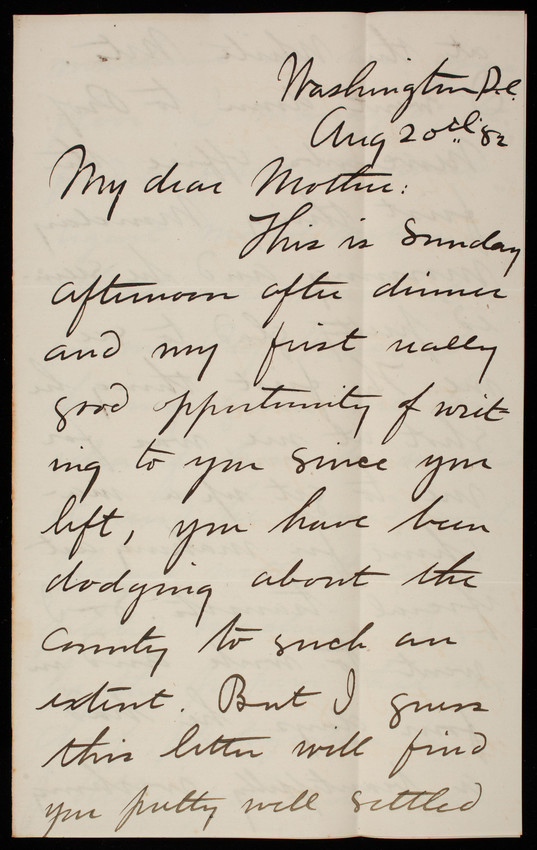 Washington D.C.
Aug 20th '82
My dear Mother:
This is Sunday
afternoon after dinner
and my first really
good opportunity of writ-
ing to you since you
left, you have been
dodging about the
country to such an
extent. But I guess
this letter will find
you pretty well settled